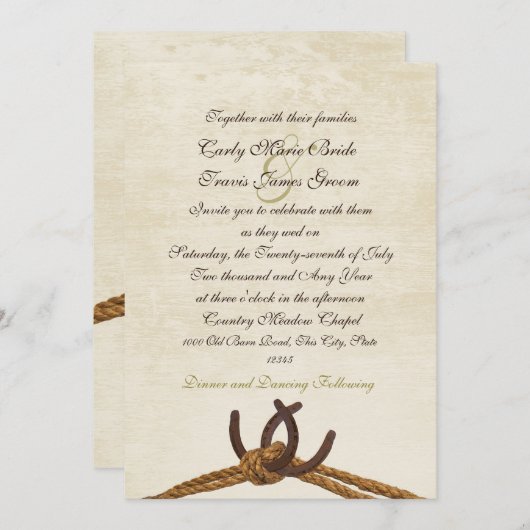 Together with their families
Carly Marie Bride
&
Travis James Groom
Invite you to celebrate with them
as they wed on
Saturday, the Twenty-seventh of July
Two thousand and Any Year
at three o'clock in the afternoon
Country Meadow Chapel
1000 Old Barn Road, This City, State
12345
Dinner and Dancing Following